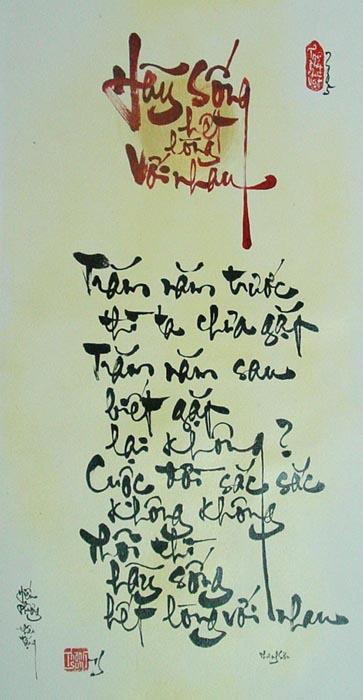 Hãy Sống
hết
lòng
Với nhau
Trăm năm trước
thì ta chưa gặp
Trăm năm sau
biết gặp
lại không?
Cuộc đời sắc sắc
không không
Thôi thì
hãy sống
hết lòng với nhau
Thanh
Sơn